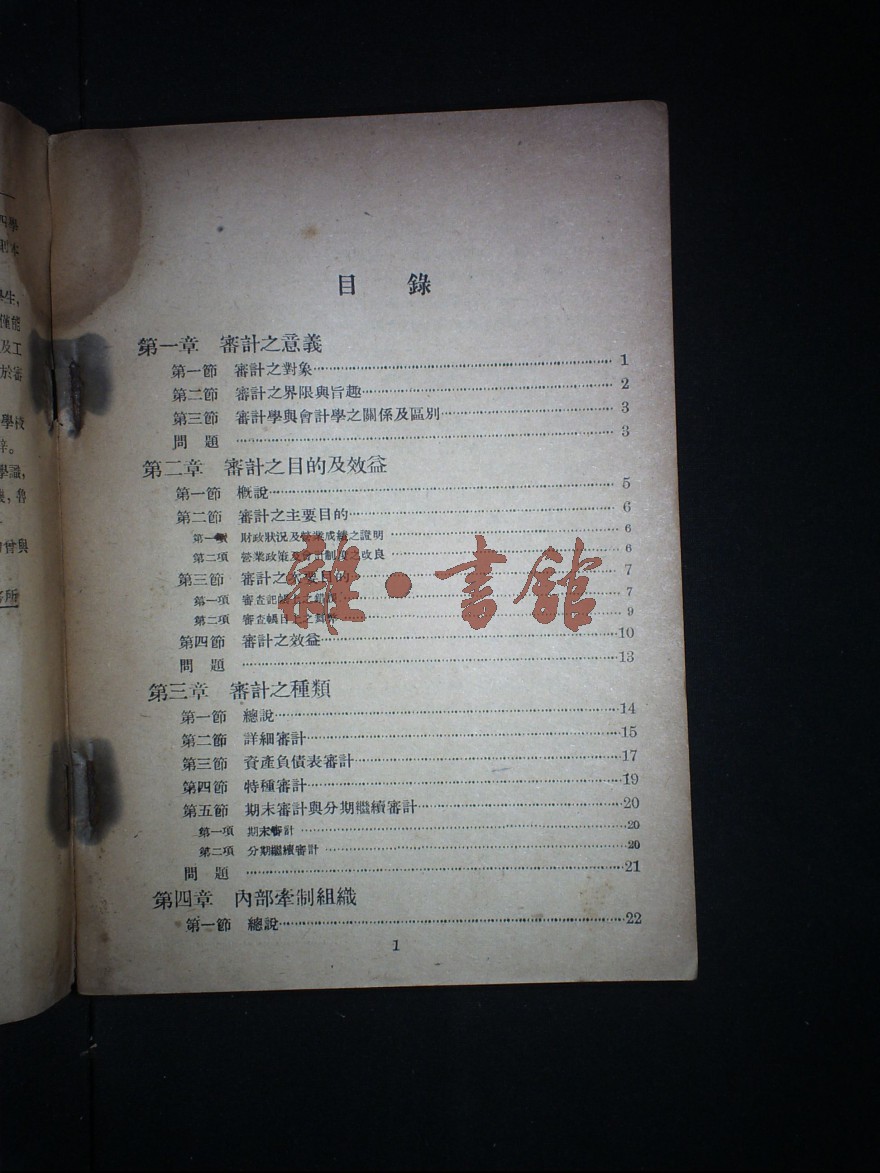 四學
則本
學生,
僅能
及工
於審
學校
學識,
魯
曾與
目錄
第一章 審計之意義
第一節 審計之對象 1
第二節 審計之界限與旨趣 2
第三節 審計學與會計學之關係及區別 3
問題 3
第二章 審計之目的及效益
第一節 概說 5
第二節 審計之主要目的 6
第一項 財政狀況及營業成績之證明 6
第二項 營業政策及會計制度之改良 6
第三節 審計之次要目的 7
第一項 審查記帳上之錯誤 7
第二項 審查帳目上之舞弊 9
第四節 審計之效益 10
問題 13
第三章 審計之種類
第一節 總說 14
第二節 詳細審計 15
第三節 資產負債表審計 17
第四節 特種審計 19
第五節 期末審計與分期繼續審計 20
第一項 期末審計 20
第二項 分期繼續審計 20
問題 21
第四章 內部牽制組織
第一節 總說 22
1
雜·書館